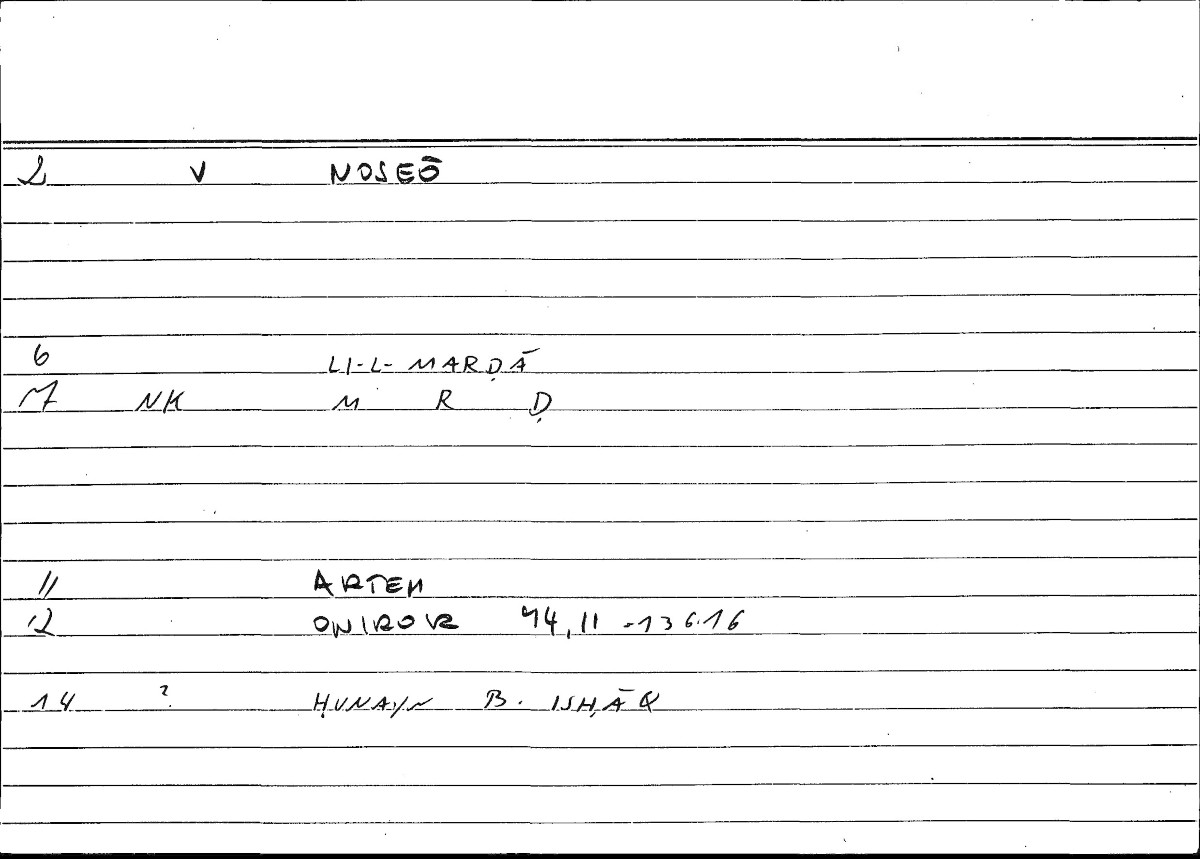 2 V NOSEŌ
6 LI-L-MARḌĀ
7 NK M R Ḍ
11 ARTEM
12 ONIROKR 94,11 -136.16
14 ? ḤUNAYN B. ISḤĀQ